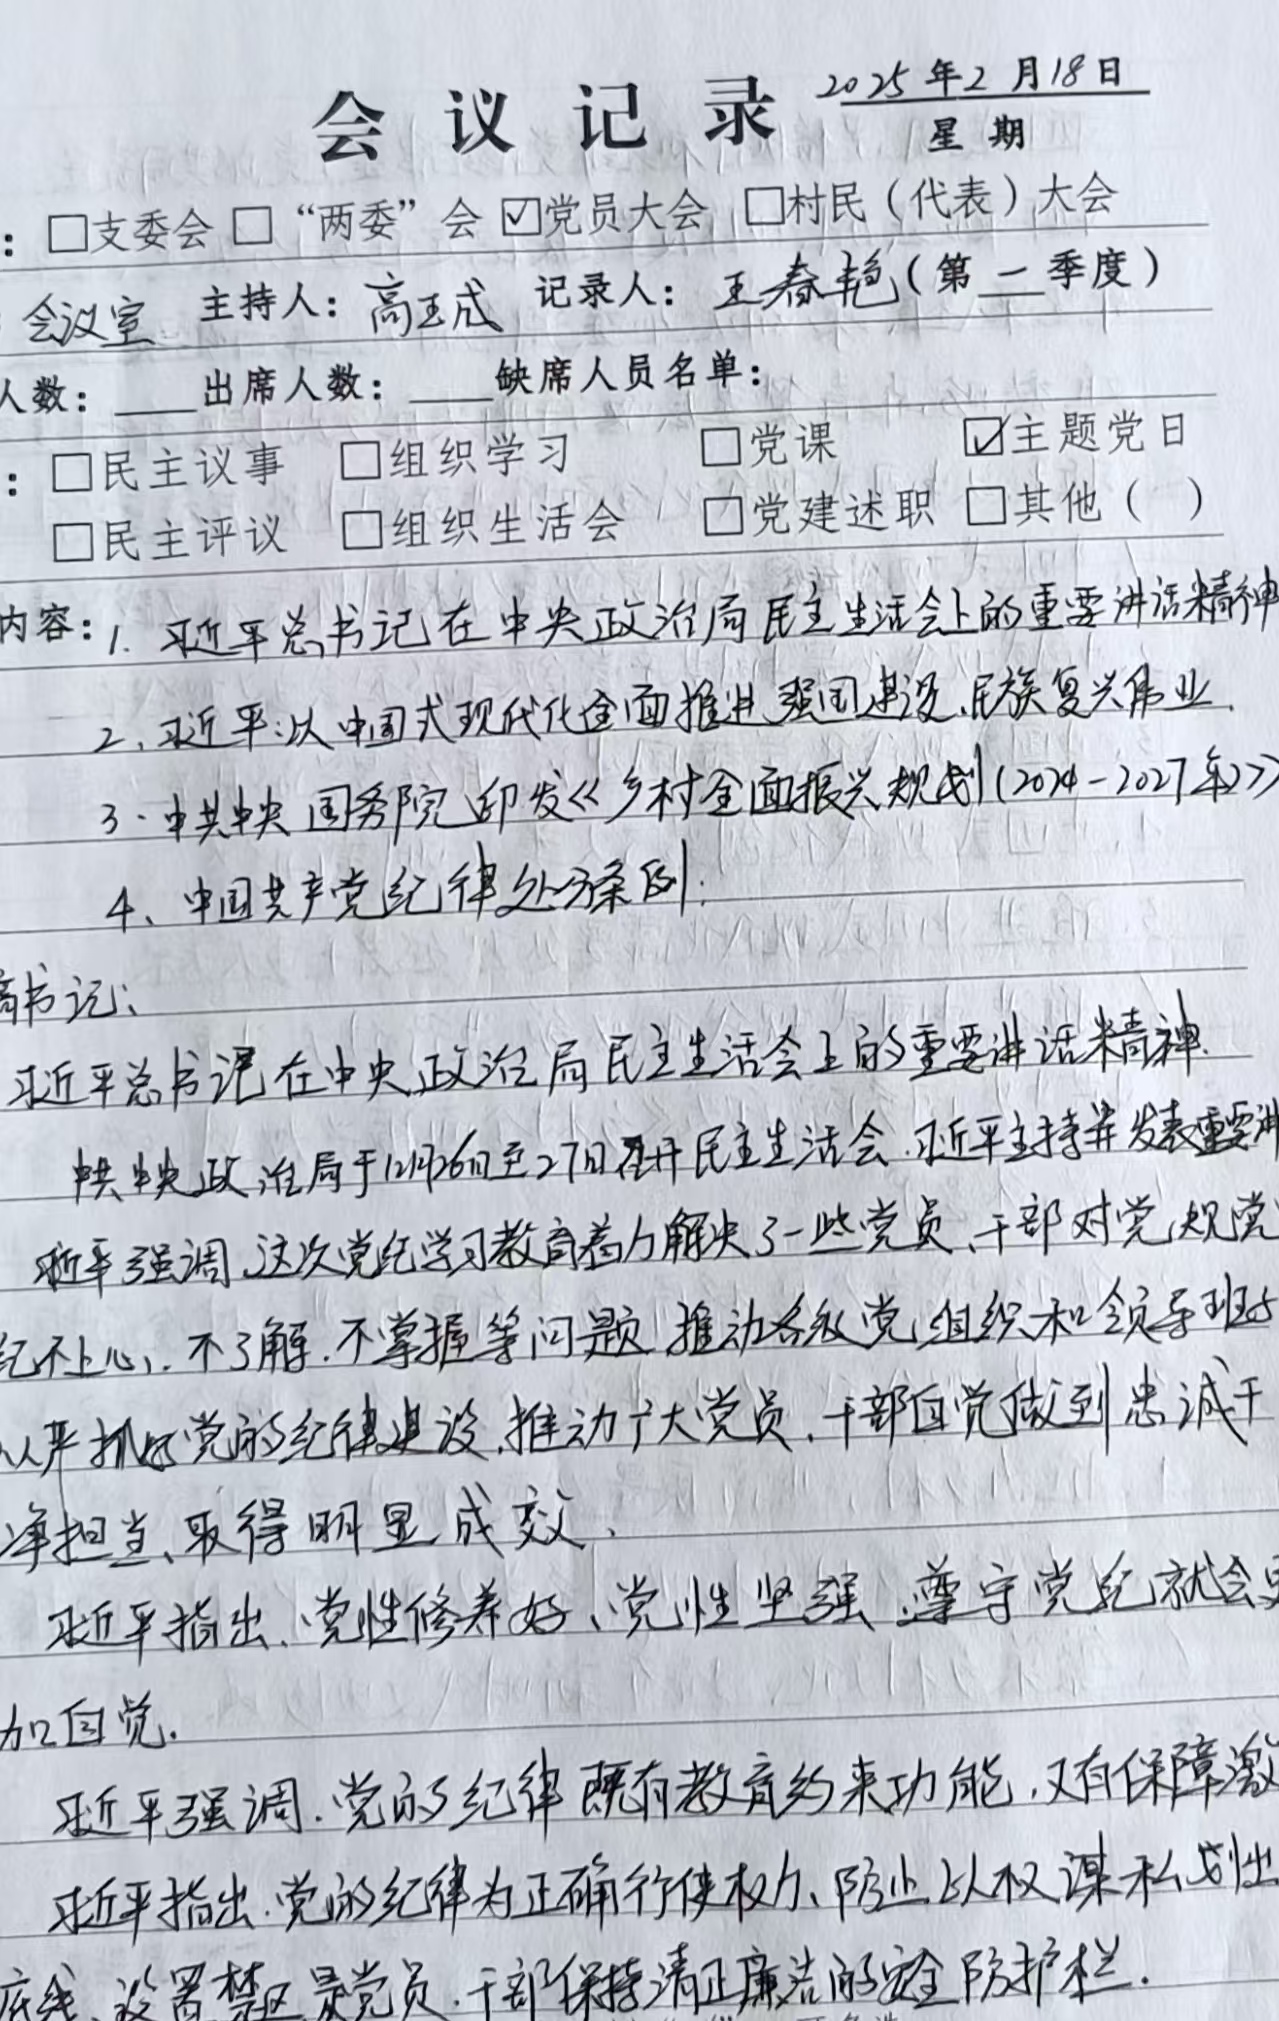 会议记录 2025年2月18日
星期
：□支委会 □“两委”会 ☑党员大会 □村民（代表）大会
：会议室 主持人：高玉成 记录人：王春艳（第一季度）
人数：____出席人数：____缺席人员名单：
：□民主议事 □组织学习 □党课 ☑主题党日
□民主评议 □组织生活会 □党建述职 □其他（ ）
内容：1. 习近平总书记在中央政治局民主生活会上的重要讲话精神
2、习近平：以中国式现代化全面推进强国建设、民族复兴伟业.
3. 中共中央 国务院印发《乡村全面振兴规划(2024-2027年)》
4、中国共产党纪律处分条例.
高书记：
习近平总书记在中央政治局民主生活会上的重要讲话精神.
中共中央政治局于12月26日至27日召开民主生活会.习近平主持并发表重要讲
习近平强调、这次党纪学习教育着力解决了一些党员、干部对党规党
纪不上心、不了解、不掌握等问题,推动各级党组织和领导班子
从严抓好党的纪律建设,推动广大党员、干部自觉做到忠诚干
净担当、取得明显成效.
习近平指出、党性修养好、党性坚强、遵守党纪就会更
加自觉.
习近平强调.党的纪律既有教育约束功能,又有保障激
习近平指出.党的纪律为正确行使权力、防止以权谋私划出
底线、设置禁区.是党员、干部保持清正廉洁的安全防护栏.